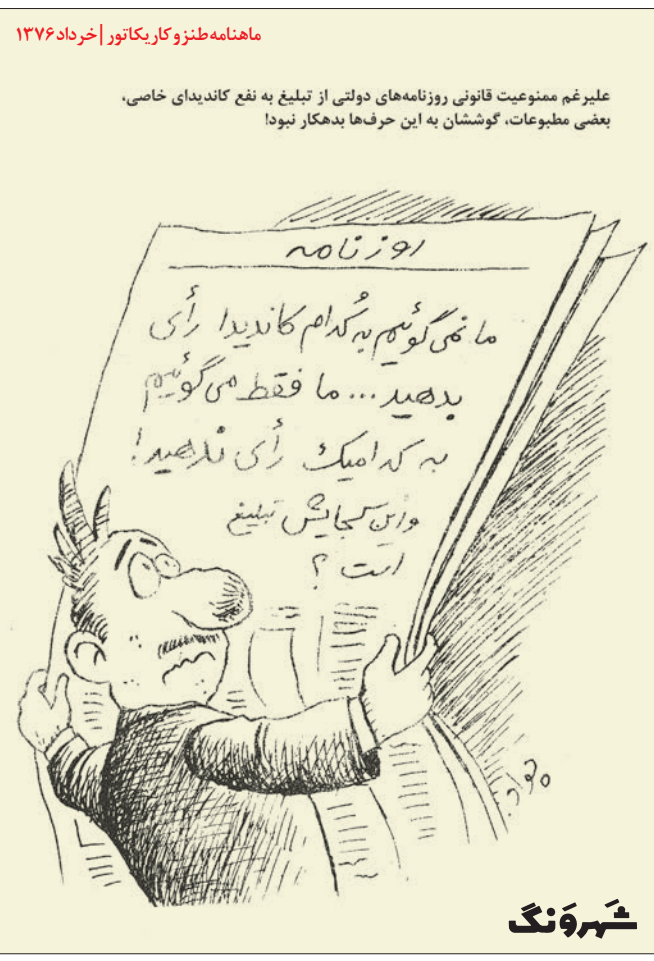 ماهنامه طنز و کاریکاتور | خرداد ۱۳۷۶
علیرغم ممنوعیت قانونی روزنامه‌های دولتی از تبلیغ به نفع کاندیدای خاصی،
بعضی مطبوعات، گوششان به این حرف‌ها بدهکار نبود!
روزنامه
ما نمی‌گوئیم به کُدام کاندیدا رأی
بدهید... ما فقط می‌گوئیم
به کدامیک رأی ندهید!
واین کجایش تبلیغ
است؟
جواد
شَهروَنگ